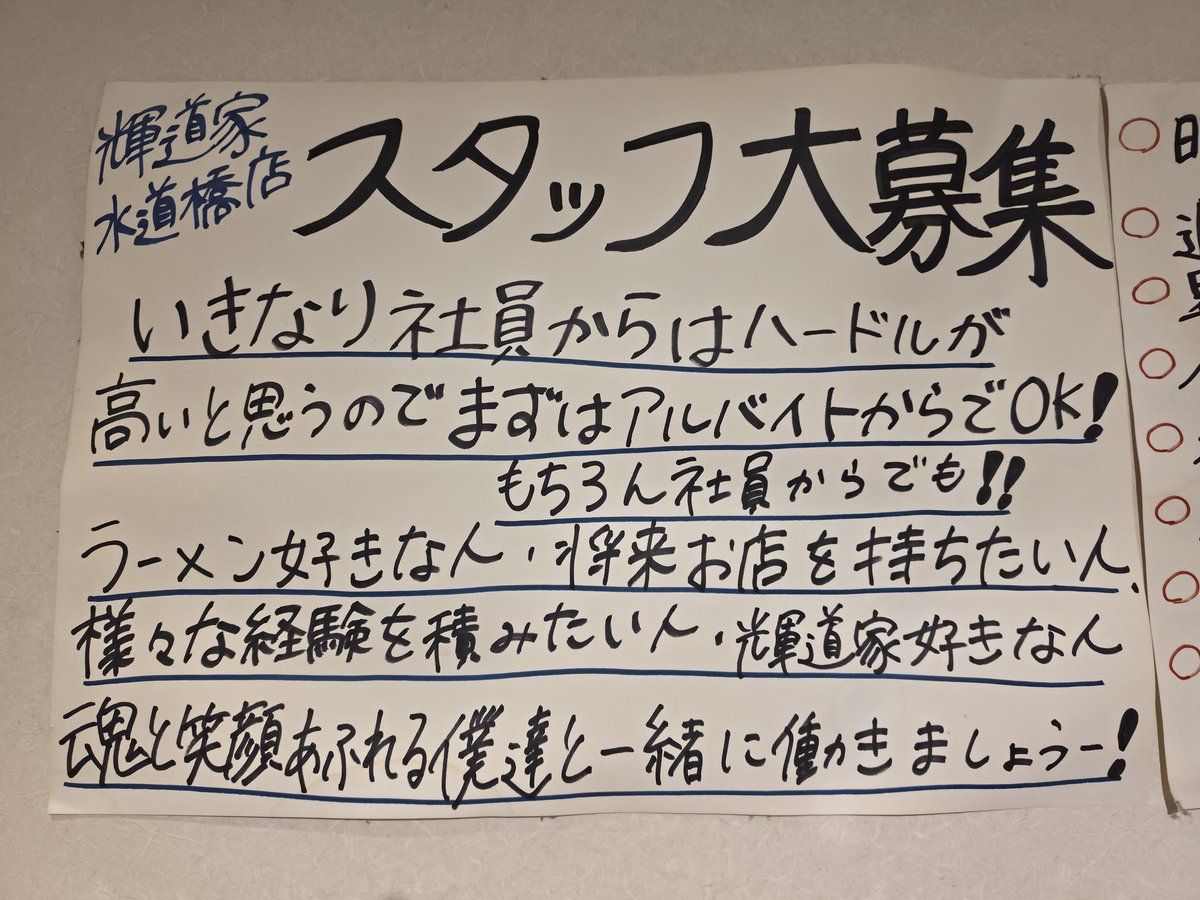 輝道家
水道橋店
スタッフ大募集
いきなり社員からはハードルが
高いと思うのでまずはアルバイトからでOK!
もちろん社員からでも!!
ラーメン好きな人・将来お店を持ちたい人、
様々な経験を積みたい人・輝道家好きな人
魂と笑顔あふれる僕達と一緒に働きましょうー!